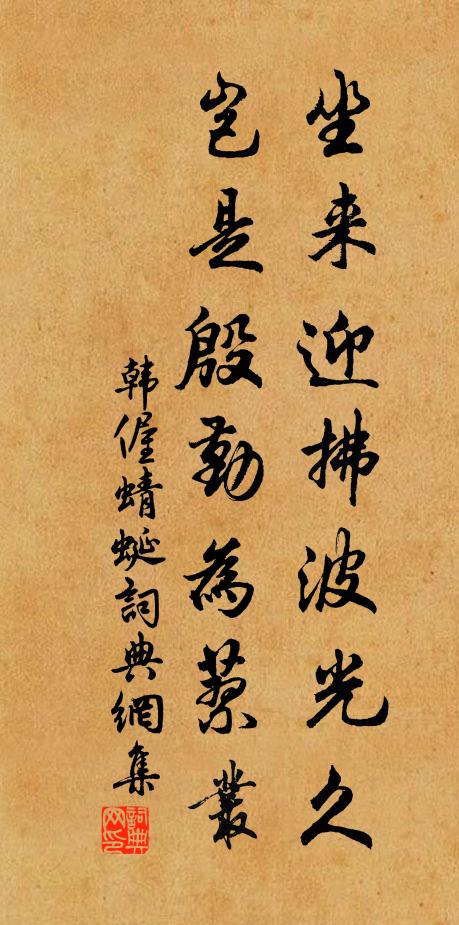 坐来迎拂波光久
岂是殷勤為蓼叢
韩偓蜻蜓詞典網集
詞典網印